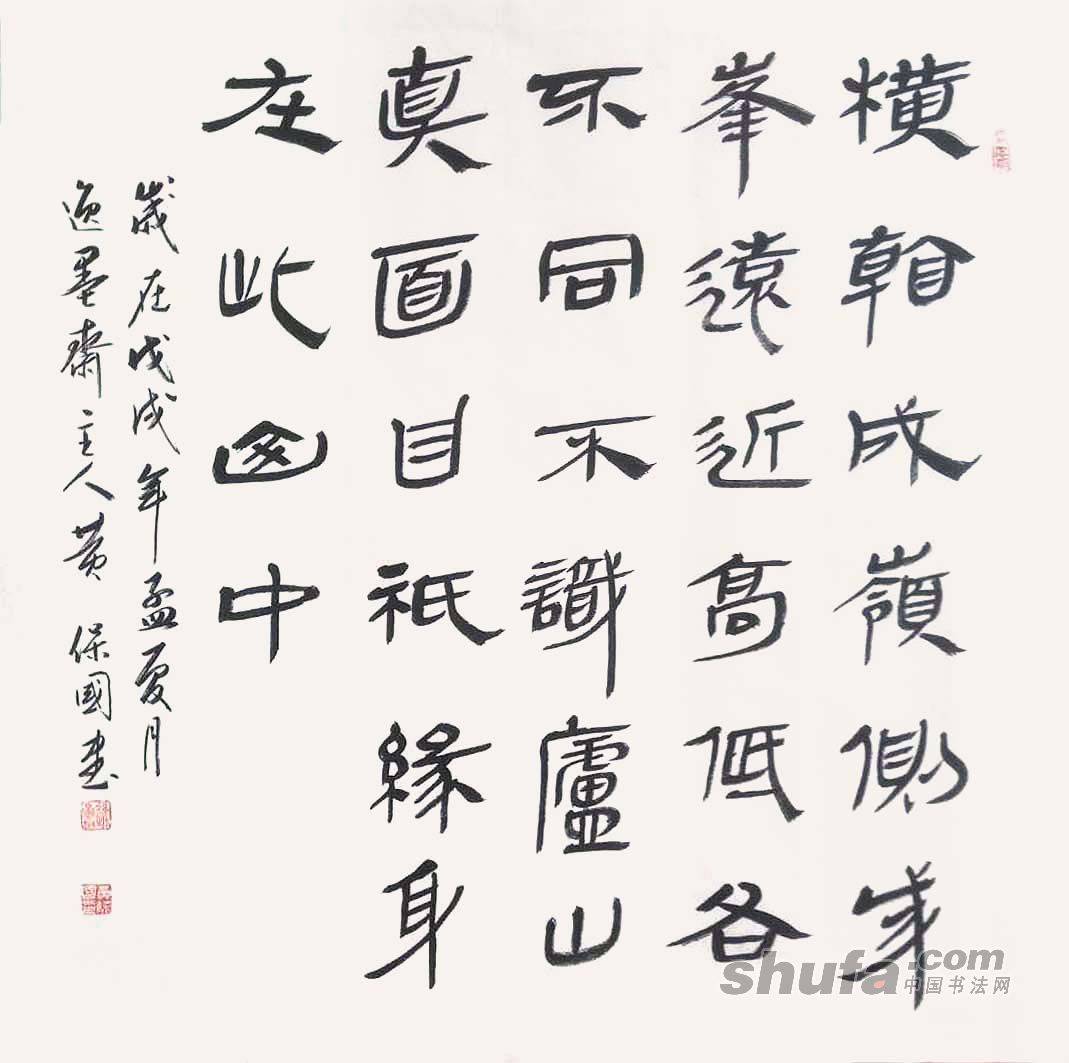 横看成嶺側成
峯遠近高低各
不同不識廬山
真面目祇緣身
在此山中
歲在戊戌年孟夏月
逸墨齋主人黄保國书
shufa.com
中国书法网